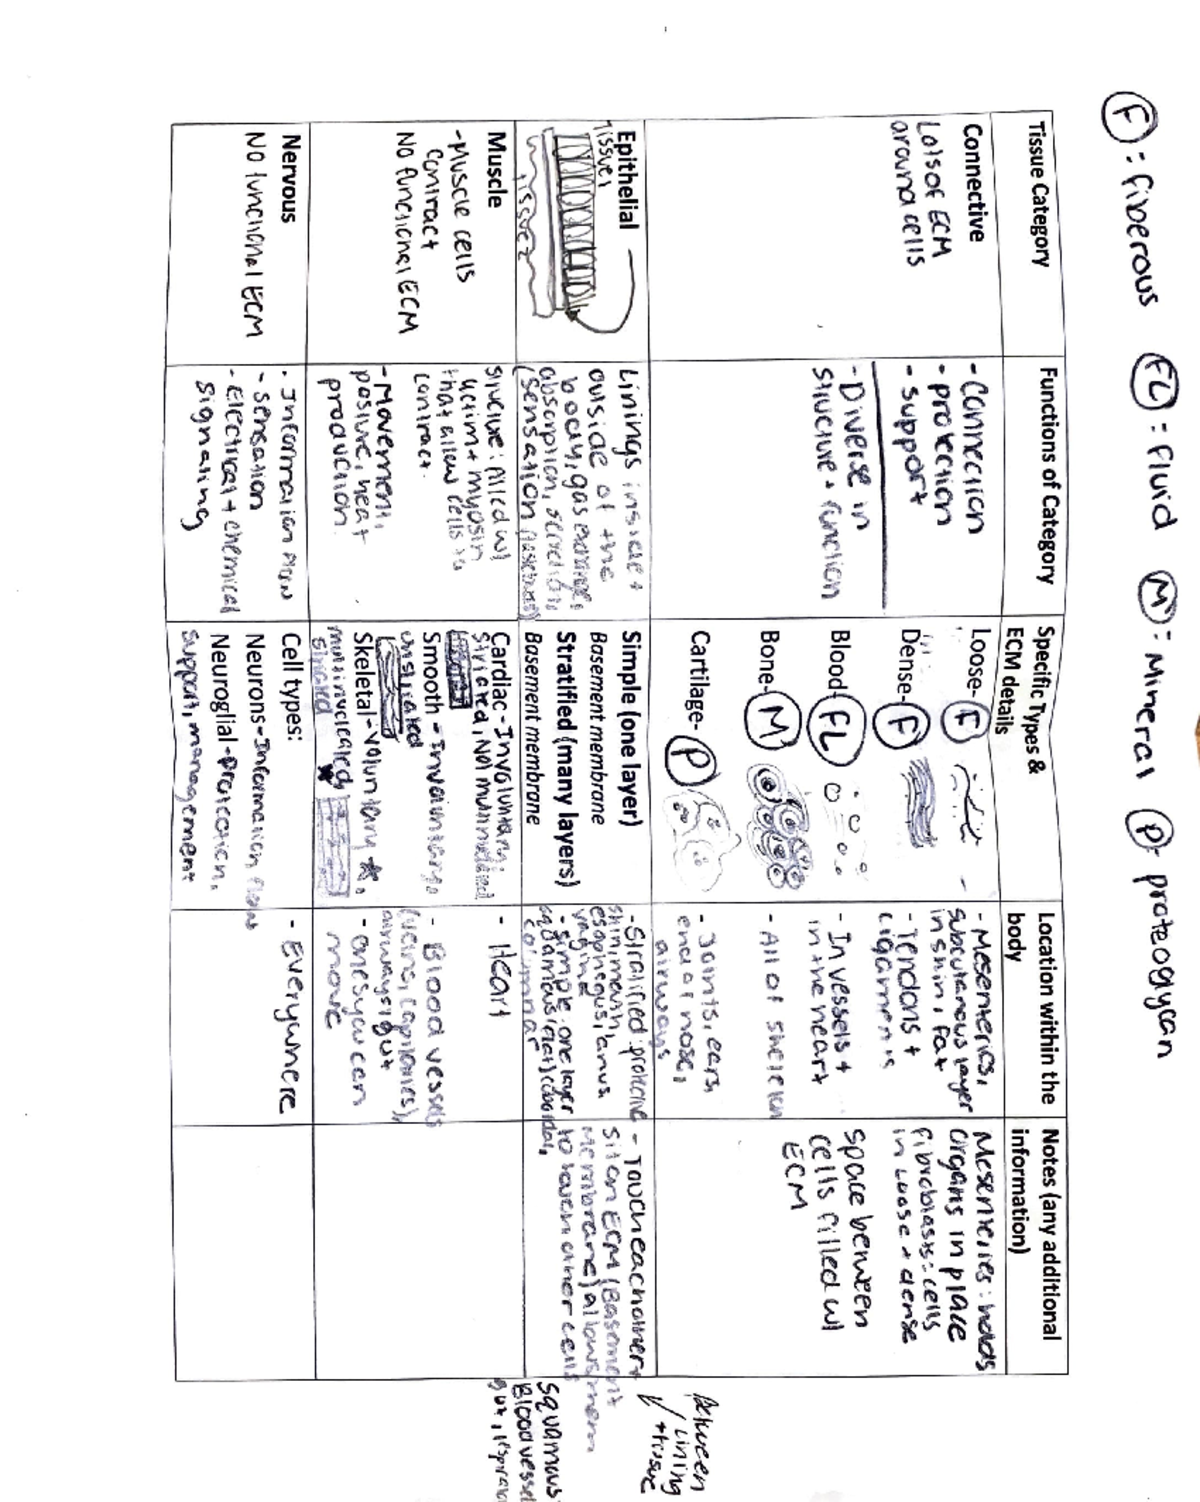 F : fiberous FL : fluid M : Mineral P : proteoglycan
Tissue Category
Functions of Category
Specific Types &
ECM details
Location within the
body
Notes (any additional
information)
Connective
Lots of ECM
around cells
- Connection
- protection
- support
- Diverse in
structure + function
Loose- F
Dense- F
Blood- FL
Bone- M
Cartilage- P
- Mesenteries,
subcutanous layer
in skin, fat
- Tendons +
ligaments
- In vessels +
in the heart
- All of skeleton
- Joints, ears,
end of nose,
airways
Mesenteries: holds
organs in place
fibroblasts = cells
in loose + dense
space between
cells filled w/
ECM
Epithelial
Tissue 1
Tissue 2
Linings inside +
outside of the
body, gas exchange,
absorption, secretion,
(sensation
Simple (one layer)
Basement membrane
Stratified (many layers)
Basement membrane
- Stratified: protective
skin, mouth,
esophagus, anus
vagina
- simple: one layer
squamous (flat) cuboidal,
columnar
- Touch eachother +
sit on ECM (Basement
Membrane) allows them
to touch other cells
between
lining
+ tissue
Squamous
Blood vessel
gut,
Muscle
- Muscle cells
contract
No functional ECM
structure: filled w/
actin + myosin
that allow cells to
contract.
- Movement,
posture, heat
production.
Cardiac - Involuntary,
striated, Not multinucleated
Smooth - Involuntary,
unstriated
Skeletal - voluntary,
multinucleated
striated
- Heart
- Blood vessels
(veins, capilaries),
airways, gut
- ones you can
move
Nervous
No functional ECM
- Information flow
- sensation
- Electrical + chemical
signaling
Cell types:
Neurons - Information flow
Neuroglial - protection,
support, management
- Everywhere